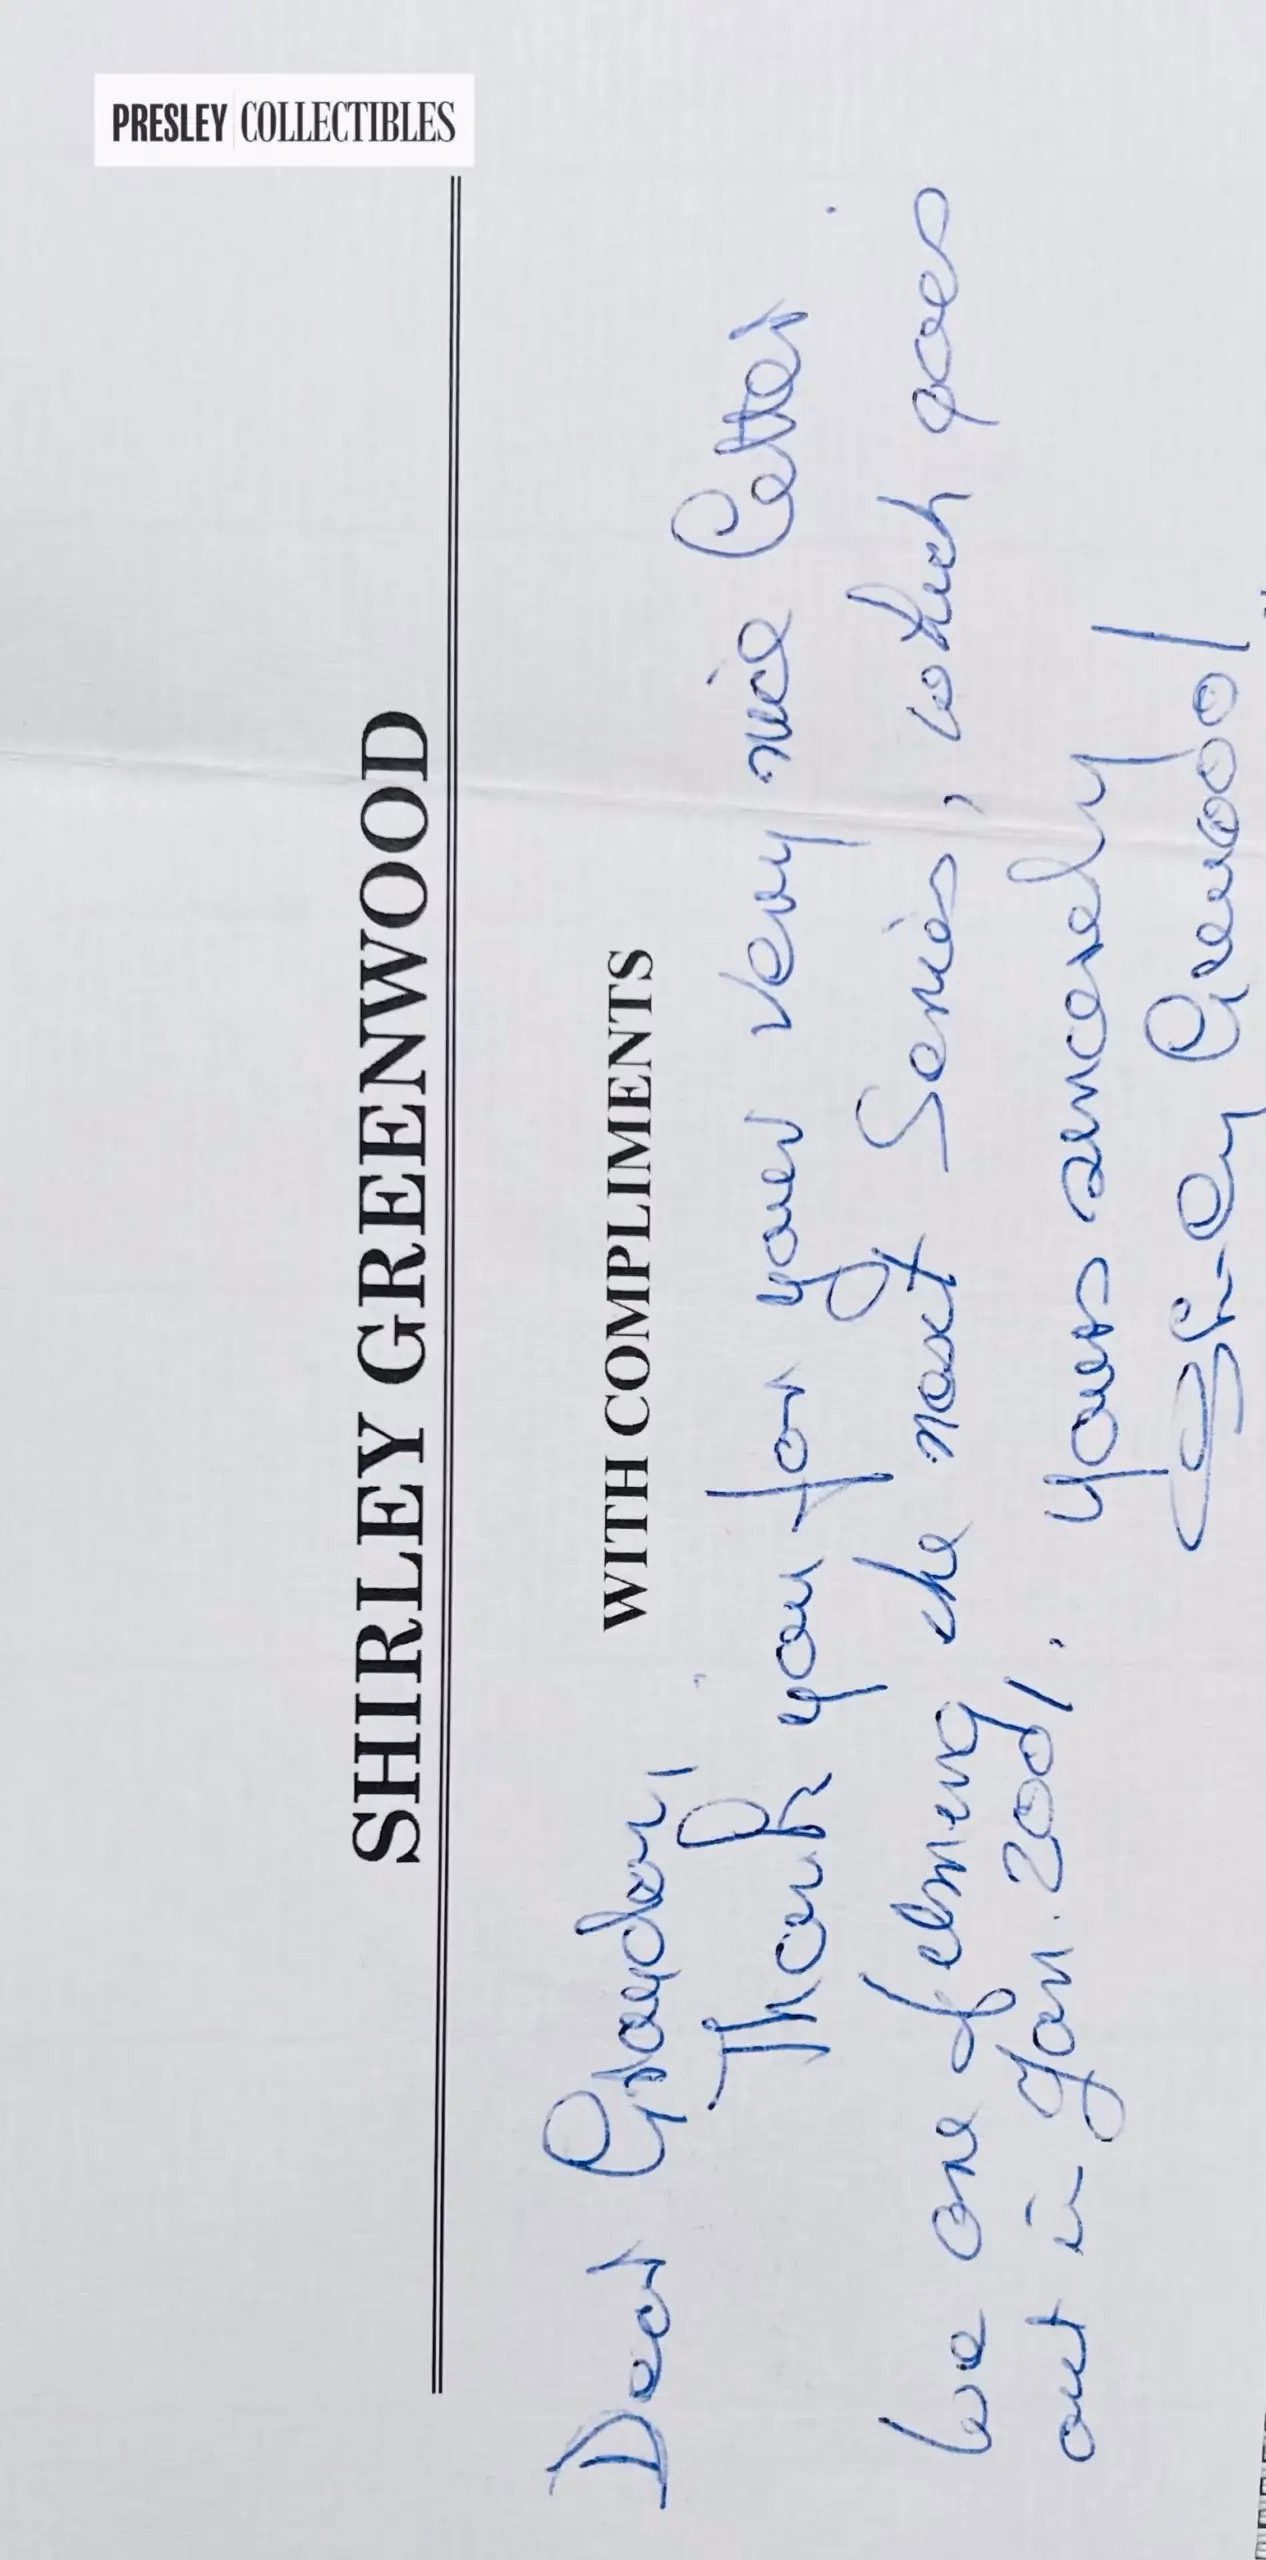 PRESLEY COLLECTIBLES
SHIRLEY GREENWOOD
WITH COMPLIMENTS
Dear Graydon,
Thank you for your very nice letter.
We are filming the next Series, which goes
out in Jan. 2001.
Yours sincerely
Shirley Greenwood